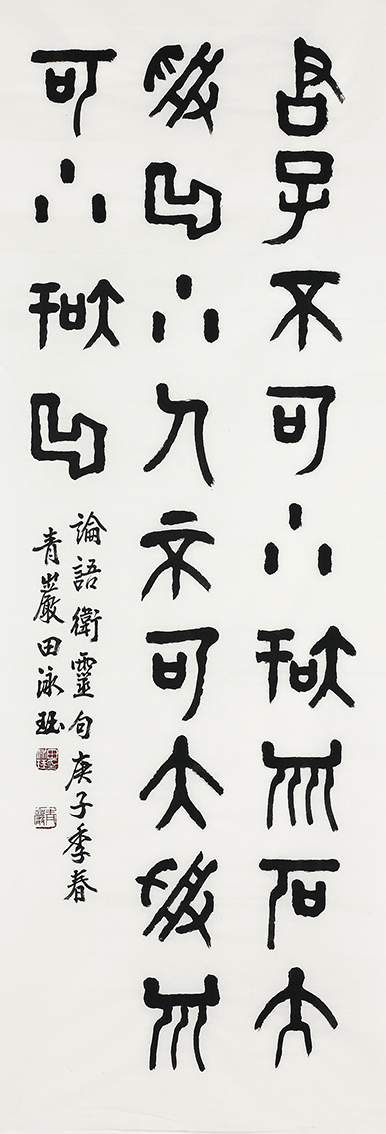 君子不可小知而可大
受也小人不可大受而
可小知也
論語衛靈句庚子季春
青巖田泳